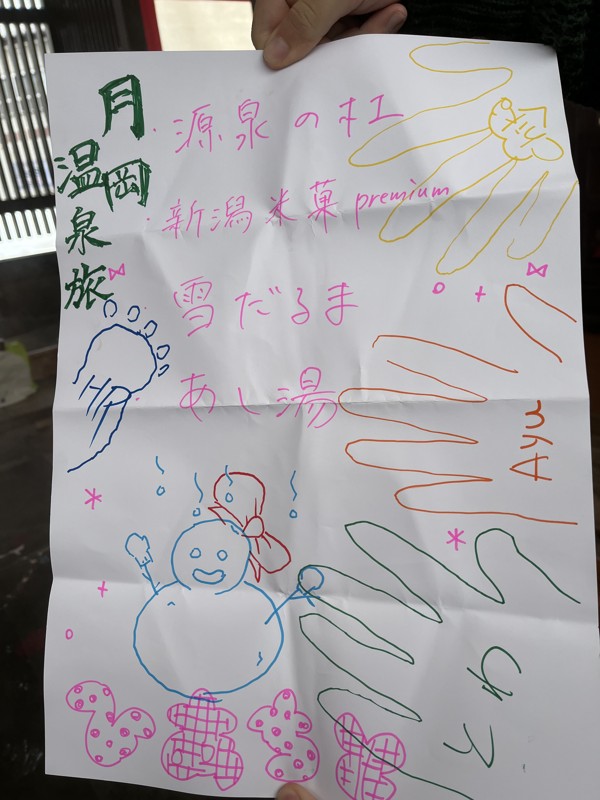 月岡温泉旅
・源泉の杜
・新潟米菓premium
雪だるま
あし湯
Ayu